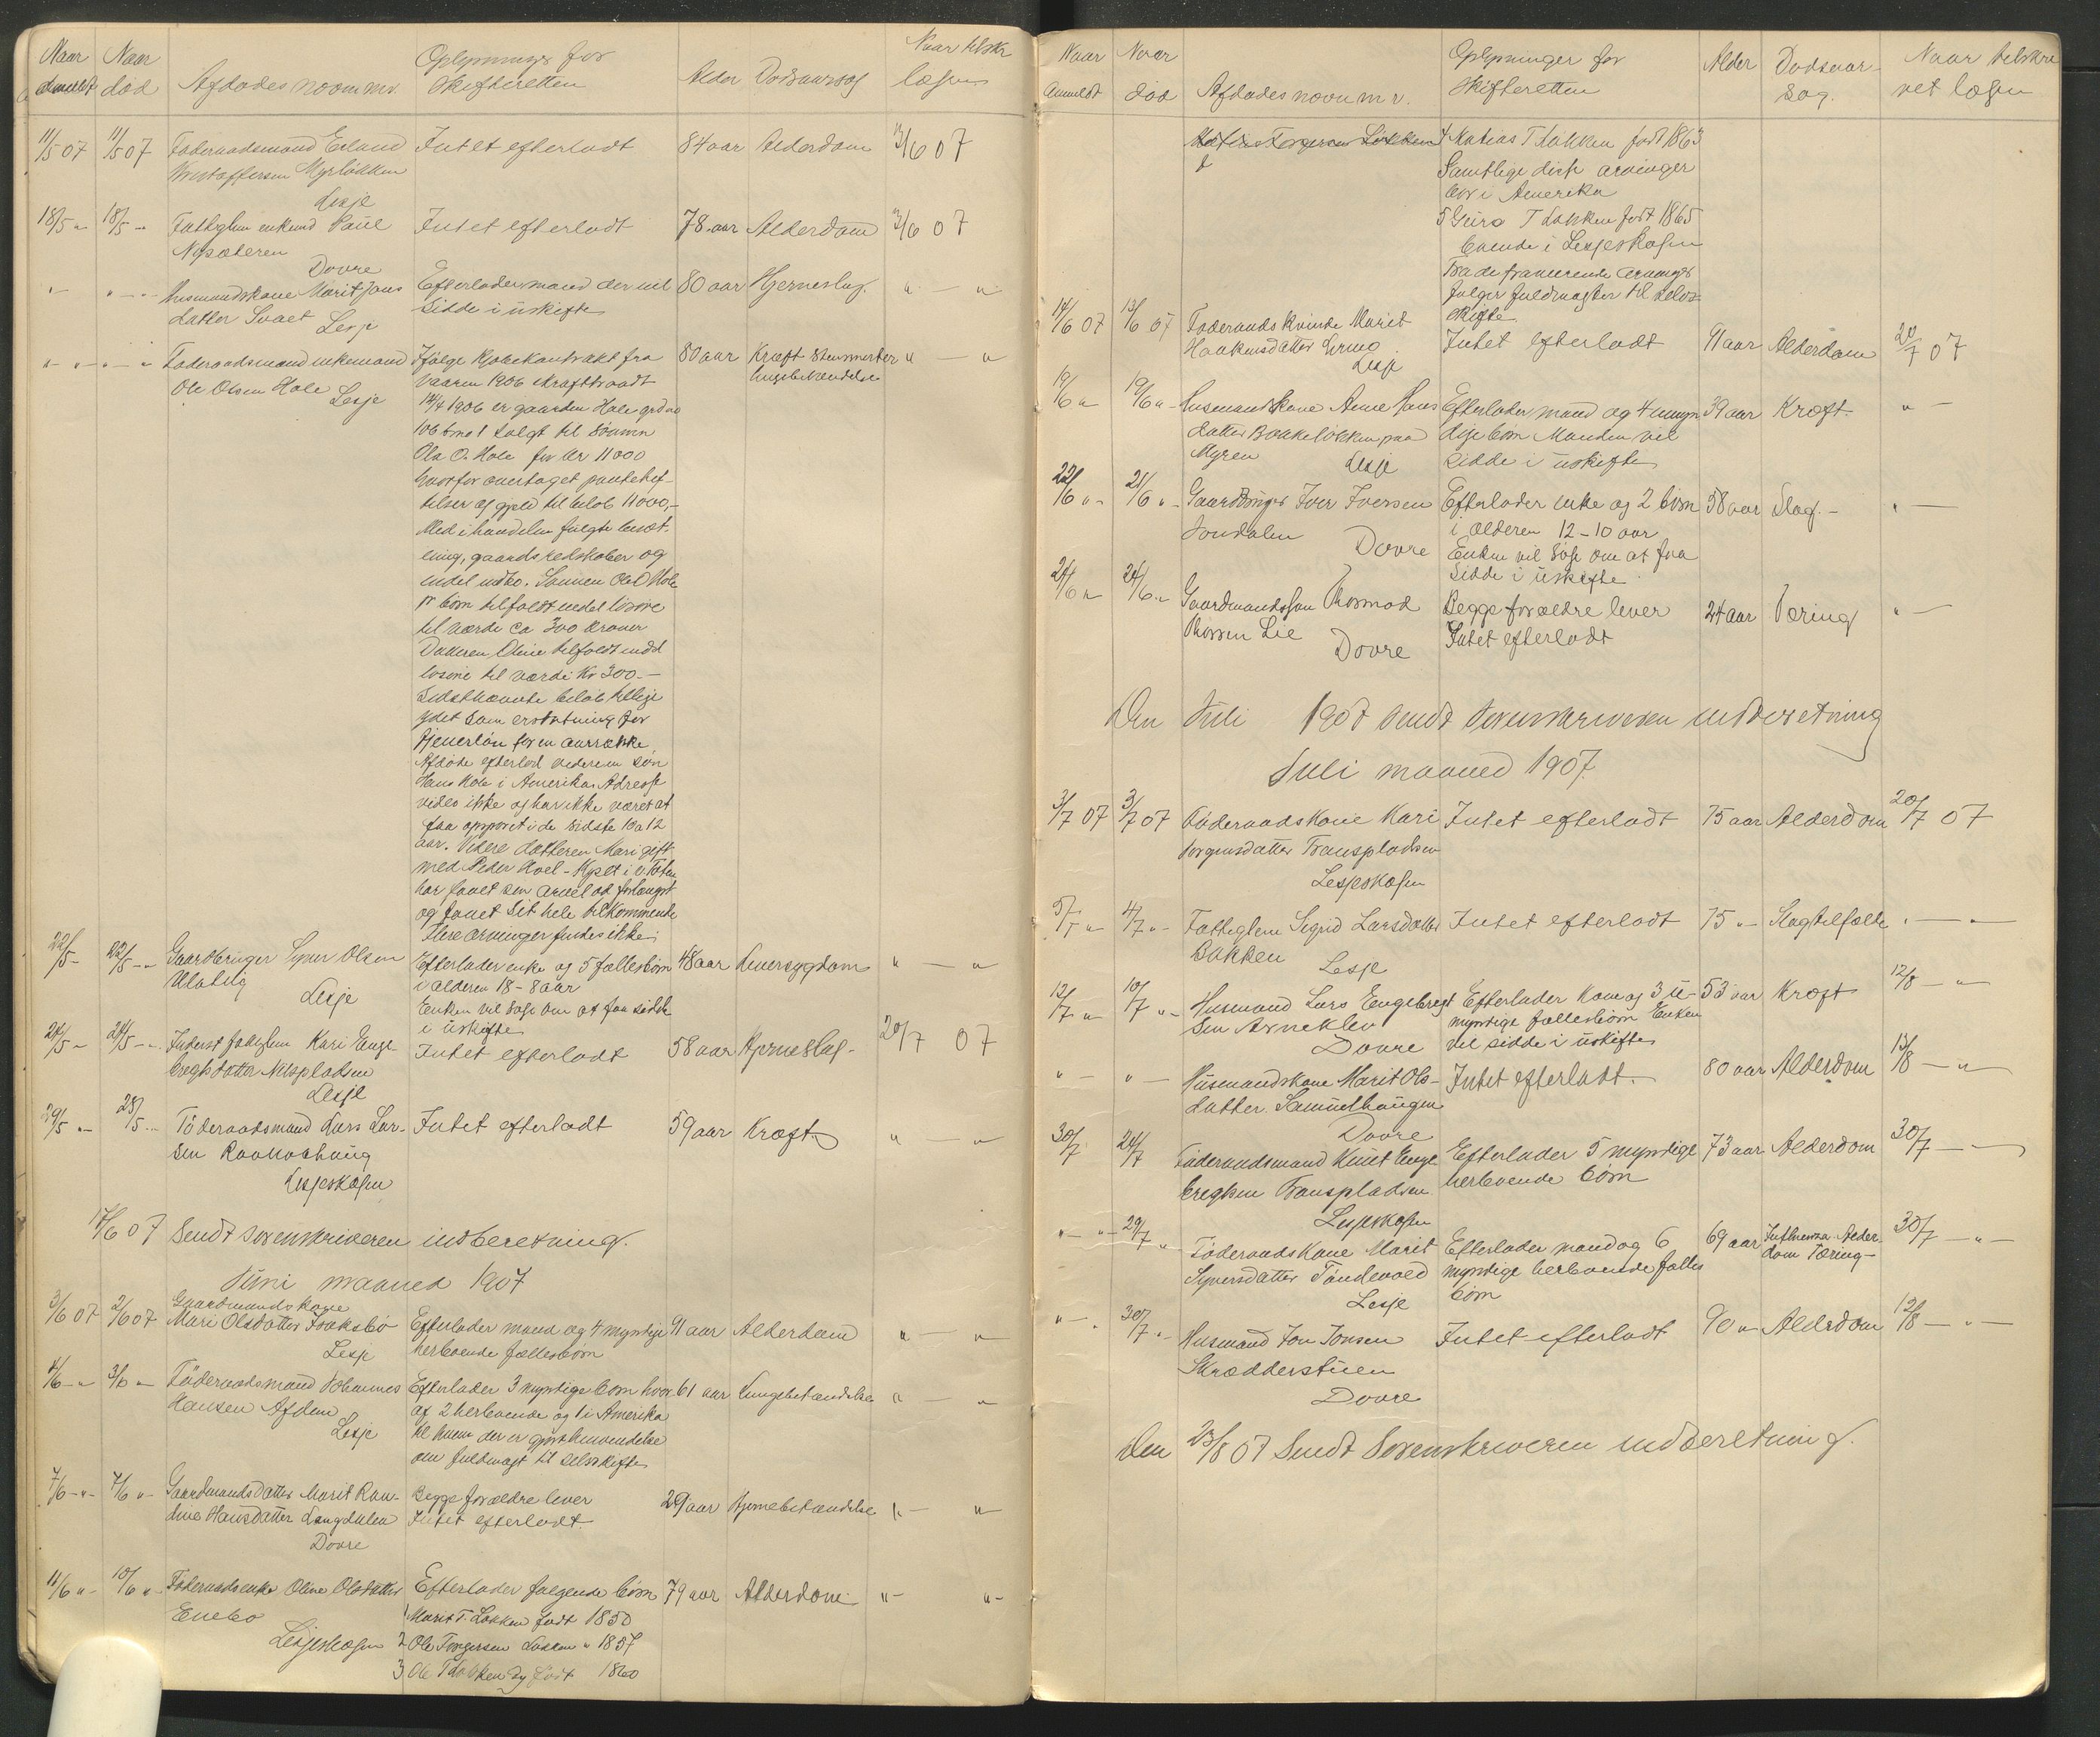 Naar Naar Oplysninger for Naar tilskr
anmeldt död Afdødes navn m.v. Skifteretten Alder Dødsaarsag lægen
11/5 07 11/5 07 Föderaadsmand Erland Intet efterladt 84 aar Alderdom 3/6 07
Kristoffersen Myrløkken
Lesje
18/5 " 18/5 " Fattiglem enkemd Paul Intet efterladt 78 aar Alderdom 3/6 07
Dovre
" " Husmandskone Marit Jans Efterlader mand der vil 80 aar Hjerneslag " — "
datter Svaet sidde i uskifte
Lesje
" " Föderaadsmand enkemand Ifølge Kjøbekontrakt fra 80 aar Kræft "— "
Ole Olsen Hole vaaren 1906
Lesje
14/4 1906 er gaarden Hole grdno
106 bno 1 solgt til sönnen
Ola O. Hole for Kr 11000
hvorfor overtaget pantehef-
telser og gjæld til beløb 11000,-
Med i handelen fulgte besæt-
ning, gaardsredskaber og
endel indbo. Sønnen Ole O Hole
til værdi ca 300 kroner
Datteren Oline tilfaldt endel
løsøre til værdi Kr 300.-
Sidstnævnte beløb tillige
ydet som erstatning for
tjenerløn for en aarrække.
Afdøde efterlod videre en søn
Hans Hole i Amerika. Adresse
vides ikke og har ikke været at
faa opsporet i de sidste 10 a 12
aar. Videre datteren Mari gift
med Peder
har faaet sin arvelod forlængst
og faaet sit hele tilkommende
Flere arvinger findes ikke
22/5 - 22/5 - Gaardbruger Syver Olsen Efterlader enke og 5 fællesbörn 48 aar Leversygdom " — "
Ulateig i alderen 18 - 8 aar
Lesje Enken vil søge om at faa sidde
i uskifte
24/5 - 24/5 - Inderst fattiglem Kari Enge- Intet efterladt 58 aar Hjerneslag - 20/7 07
bregtsdatter Nilspladsen
Lesje
29/5 " 28/5 Föderaadsmand Lars Lar- Intet efterladt 59 aar Kræft " — "
sen
Lesjeskogen
17/6 07 Sendt sorenskriveren indberetning.
Juni maaned 1907
3/6 07 2/6 07 Gaardmandskone
Mari Olsdatter Joraksbö Efterlader mand og 4 myndige 91 aar Alderdom " — "
Lesje herboende fællesbörn
4/6 - " 3/6 " Föderaadsmand Johannes Efterlader 3 myndige børn hvor 61 aar Lungebetændelse " — "
Hansen Afdem af 2 herboende og 1 i Amerika
Lesje til hvem der er gjort henvendelse
om fuldmagt til selvskifte
7/6 - " - 7/6 " - Gaardmandsdatter Marit Ran- Begge forældre lever 29 aar Hjernebetændelse " — "
dine Hansdatter Langdalen Intet efterladt.
Dovre
11/6 " - 10/6 " - Föderaadsenke Oline Olsdatter Efterlader følgende börn 79 aar Alderdom " - " -
Enebo 1 Marit T. Løkken født 1850
Lesjeskogen 2 Ole Torgersen Løkken " 1857
3 Ole T Løkken dy født 1860
Naar Naar Oplysninger for Alder Dødsaar- Naar tilskre
Anmeldt död Afdødes navn m.v. Skifteretten sag. vet lægen
Matias Torgersen Løkken 4 Matias T Løkken født 1863
Samtlige disse arvinger
bor i Amerika
5 Guro T Løkken født 1865
boende i Lesjeskogen
Fra de fraværende arvinger
følger fuldmagter til selv-
skifte
14/6 07 13/6 07 Föderaadskvinde Marit Intet efterladt 91 aar Alderdom 20/7 07
Haakensdatter
Lesje
19/6 " 19/6 " - Husmandskone Anne Hans Efterlader mand og 4 umyn 39 aar Kræft - " —
datter Bakkeløkken paa dige børn Manden vil
Myren Lesje sidde i uskifte
22/6 " - 21/6 " - Gaardbruger Iver Iversen Efterlader enke og 2 börn 58 aar Slag. - " —
Jondalen i alderen 12 - 10 aar
Dovre Enken vil søge om at faa
sidde i uskifte
24/6 " 24/6 " Gaardmandssøn Thormod Begge forældre lever 24 aar Tæring " —
Thorsen Lie Intet efterladt
Dovre
Den Juli 1907 sendt sorenskriveren indberetning
Juli maaned 1907.
3/7 07 3/7 07 Föderaadskone Kari Intet efterladt 75 aar Alderdom 20/7 07
Torgersdatter Franspladsen
Lesjeskogen
5/7 " 4/7 " - Fattiglem Sigrid Larsdatter Intet efterladt 75 " - Slagtilfælde " — "
Bakken
Lesje
12/7 " 10/7 " - Husmand Lars Engebregt Efterlader kone og 3 u- 53 aar Kræft 12/8 — "
sen Arneklev myndige fællesbörn Enken
Dovre vil sidde i uskifte
" — " — Husmandskone Marit Ols- Intet efterladt. 80 aar Alderdom 13/8 — "
datter. Samuelhaugen
Dovre
30/7 24/7 Föderaadsmand Knut Enge Efterlader 5 myndige 73 aar Alderdom 30/7 — "
bregtsen Franspladsen herboende børn
Lesjeskogen
" - " - 29/7 " Föderaadskone Marit Efterlader mand og 6 69 aar Influenza Alder 30/7 — " —
Syversdatter Töndevold myndige herboende fælles dom Tæring -
Lesje börn
" - " 30/7 " - Husmand Jon Jonsen Intet efterladt 90 " Alderdom 12/8 — " —
Skrædderstuen
Dovre
Den 23/8 07 Sendt Sorenskriveren indberetning.